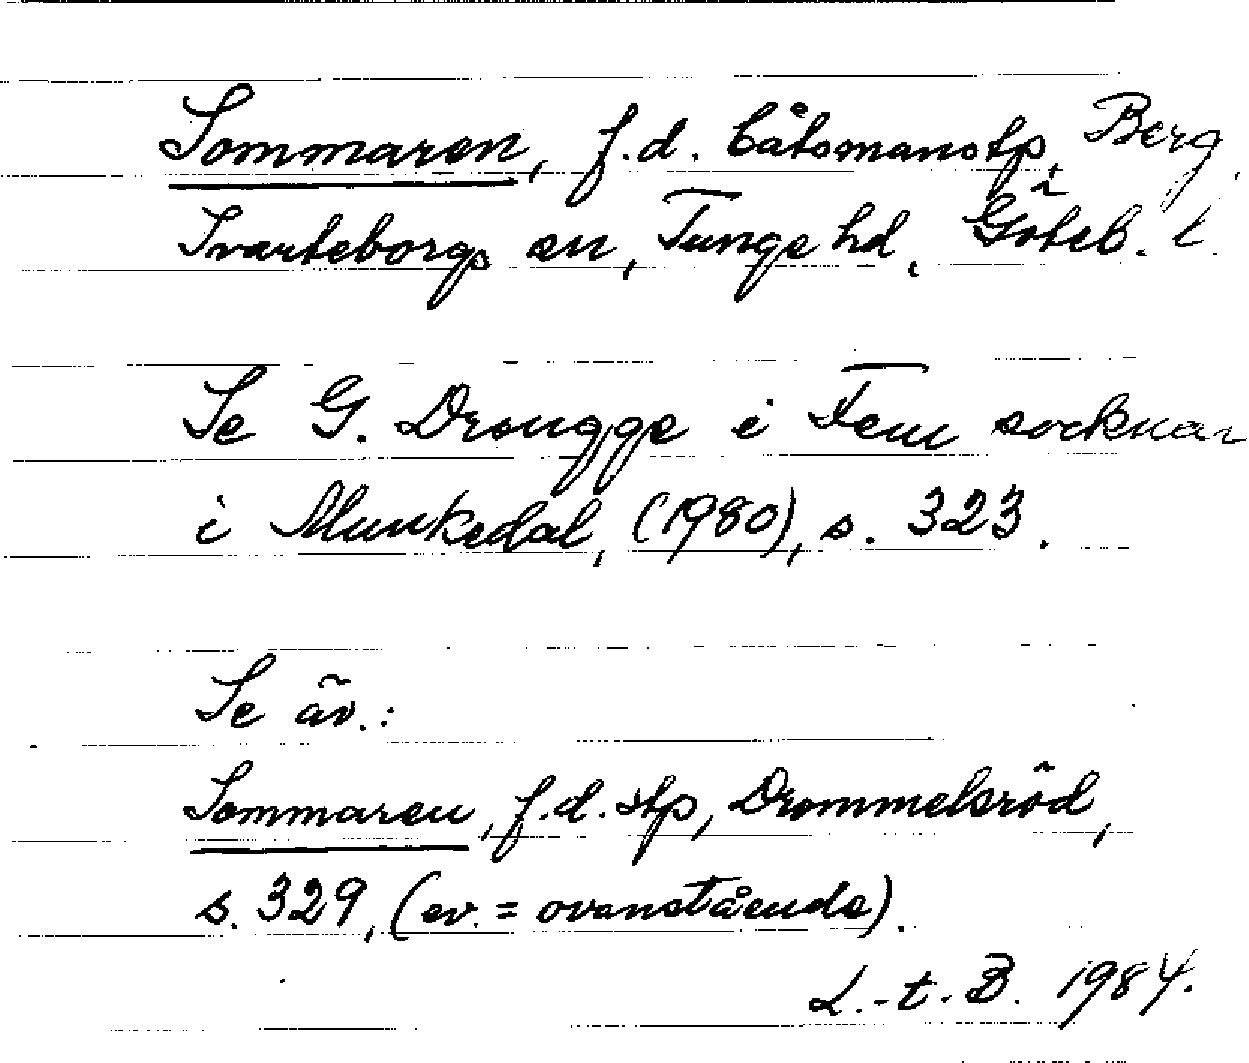 Sommaren, f.d. båtsmanstp, Berg,
Svarteborgs sn, Tunge hd, Göteb. l.
Se G. Drougge i Fem socknar
i Munkedal, (1980), s. 323.
Se äv.:
Sommaren, f.d. stp, Drommelsröd,
s. 329, (ev. = ovanstående).
L.-t. B. 1984.